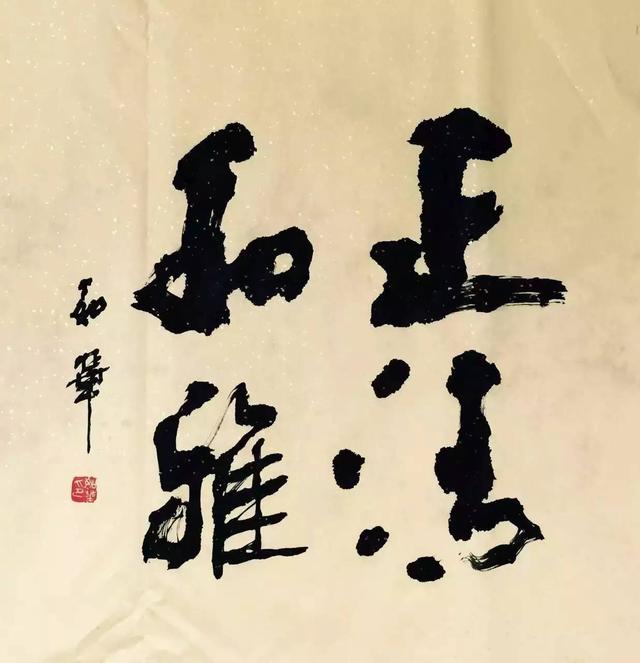 正清
和雅
和華